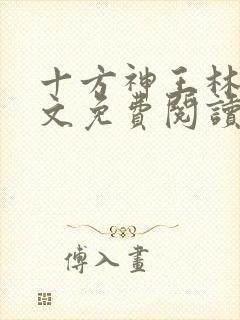 十方神王林
文免費閱讀
傅入畫